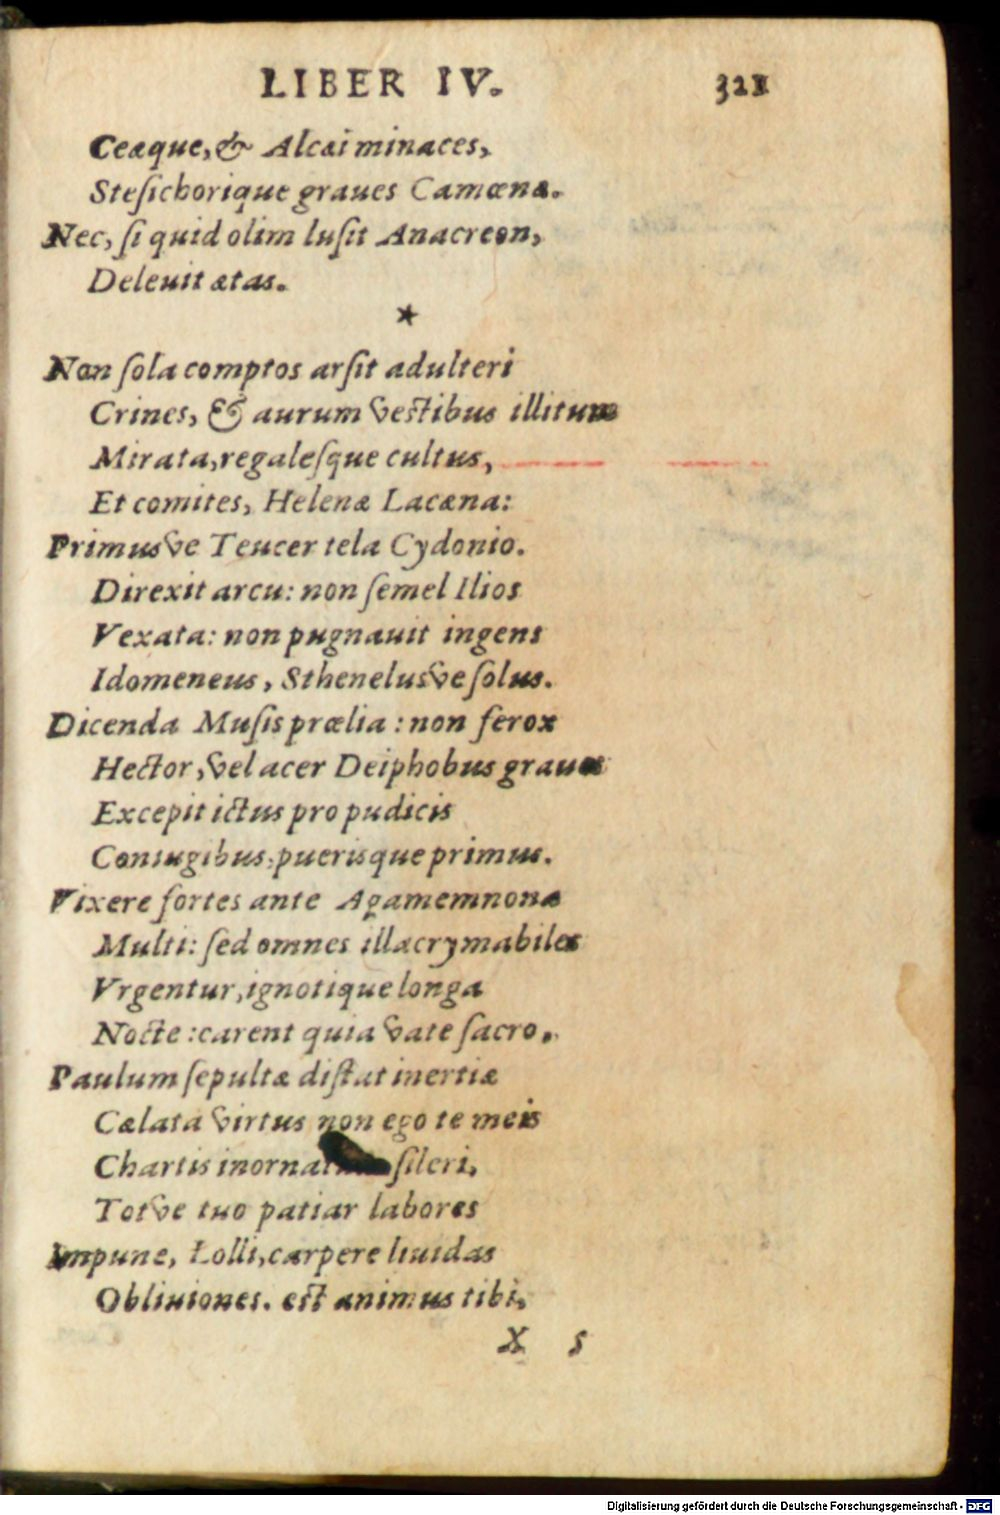 LIBER IV. 321
Ceæque, & Alcæi minaces,
Steſichorique graues Camœnæ.
Nec, ſi quid olim luſit Anacreon,
Deleuit ætas.
*
Non ſola comptos arſit adulteri
Crines, & aurum veſtibus illitum
Mirata, regaleſque cultus,
Et comites, Helenæ Lacæna:
Primusve Teucer tela Cydonio.
Direxit arcu: non ſemel Ilios
Vexata: non pugnauit ingens
Idomeneus, Sthenelusve ſolus.
Dicenda Muſis prœlia: non ferox
Hector, vel acer Deiphobus graues
Excepit ictus pro pudicis
Coniugibus, puerisque primus.
Vixere fortes ante Agamemnona
Multi: ſed omnes illacrymabiles
Vrgentur, ignotique longa
Nocte: carent quia vate ſacro.
Paulum ſepultæ diſtat inertiæ
Cælata virtus non ego te meis
Chartis ſileri,
Totve tuo patiar labores
Impune, Lolli, carpere liuidas
Obliuiones. eſt animus tibi,
X 5
Digitalisierung gefördert durch die Deutsche Forschungsgemeinschaft - DFG